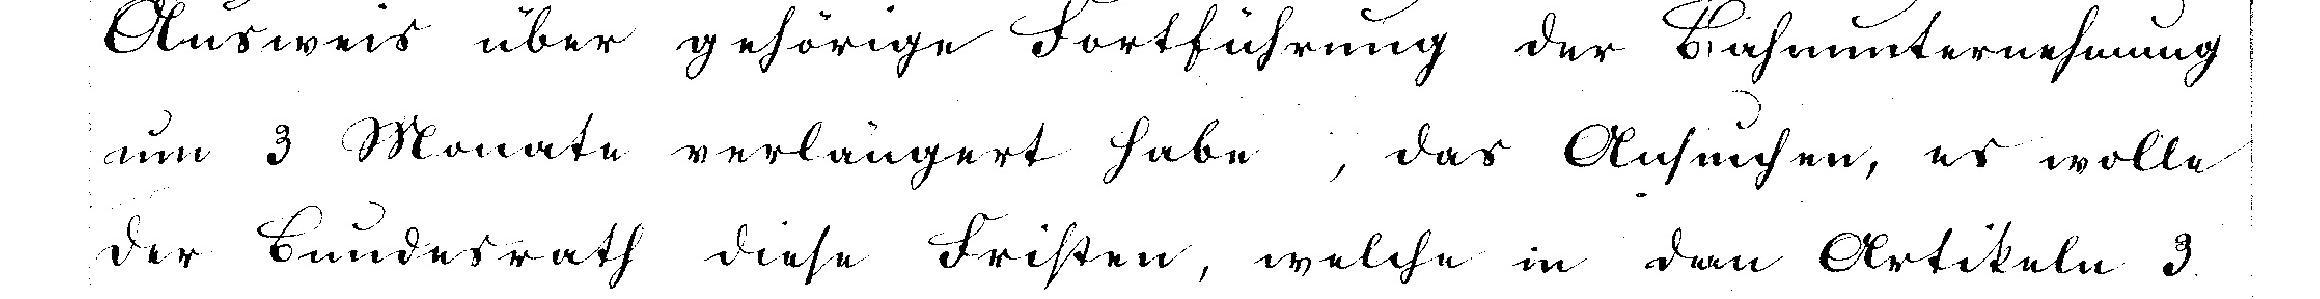 Ausweis über gehörige Fortführung der Bahnunternehmung
um 3 Monate verlängert habe, das Ansuchen, es wolle
der Bundesrath diese Fristen, welche in den Artikeln 3